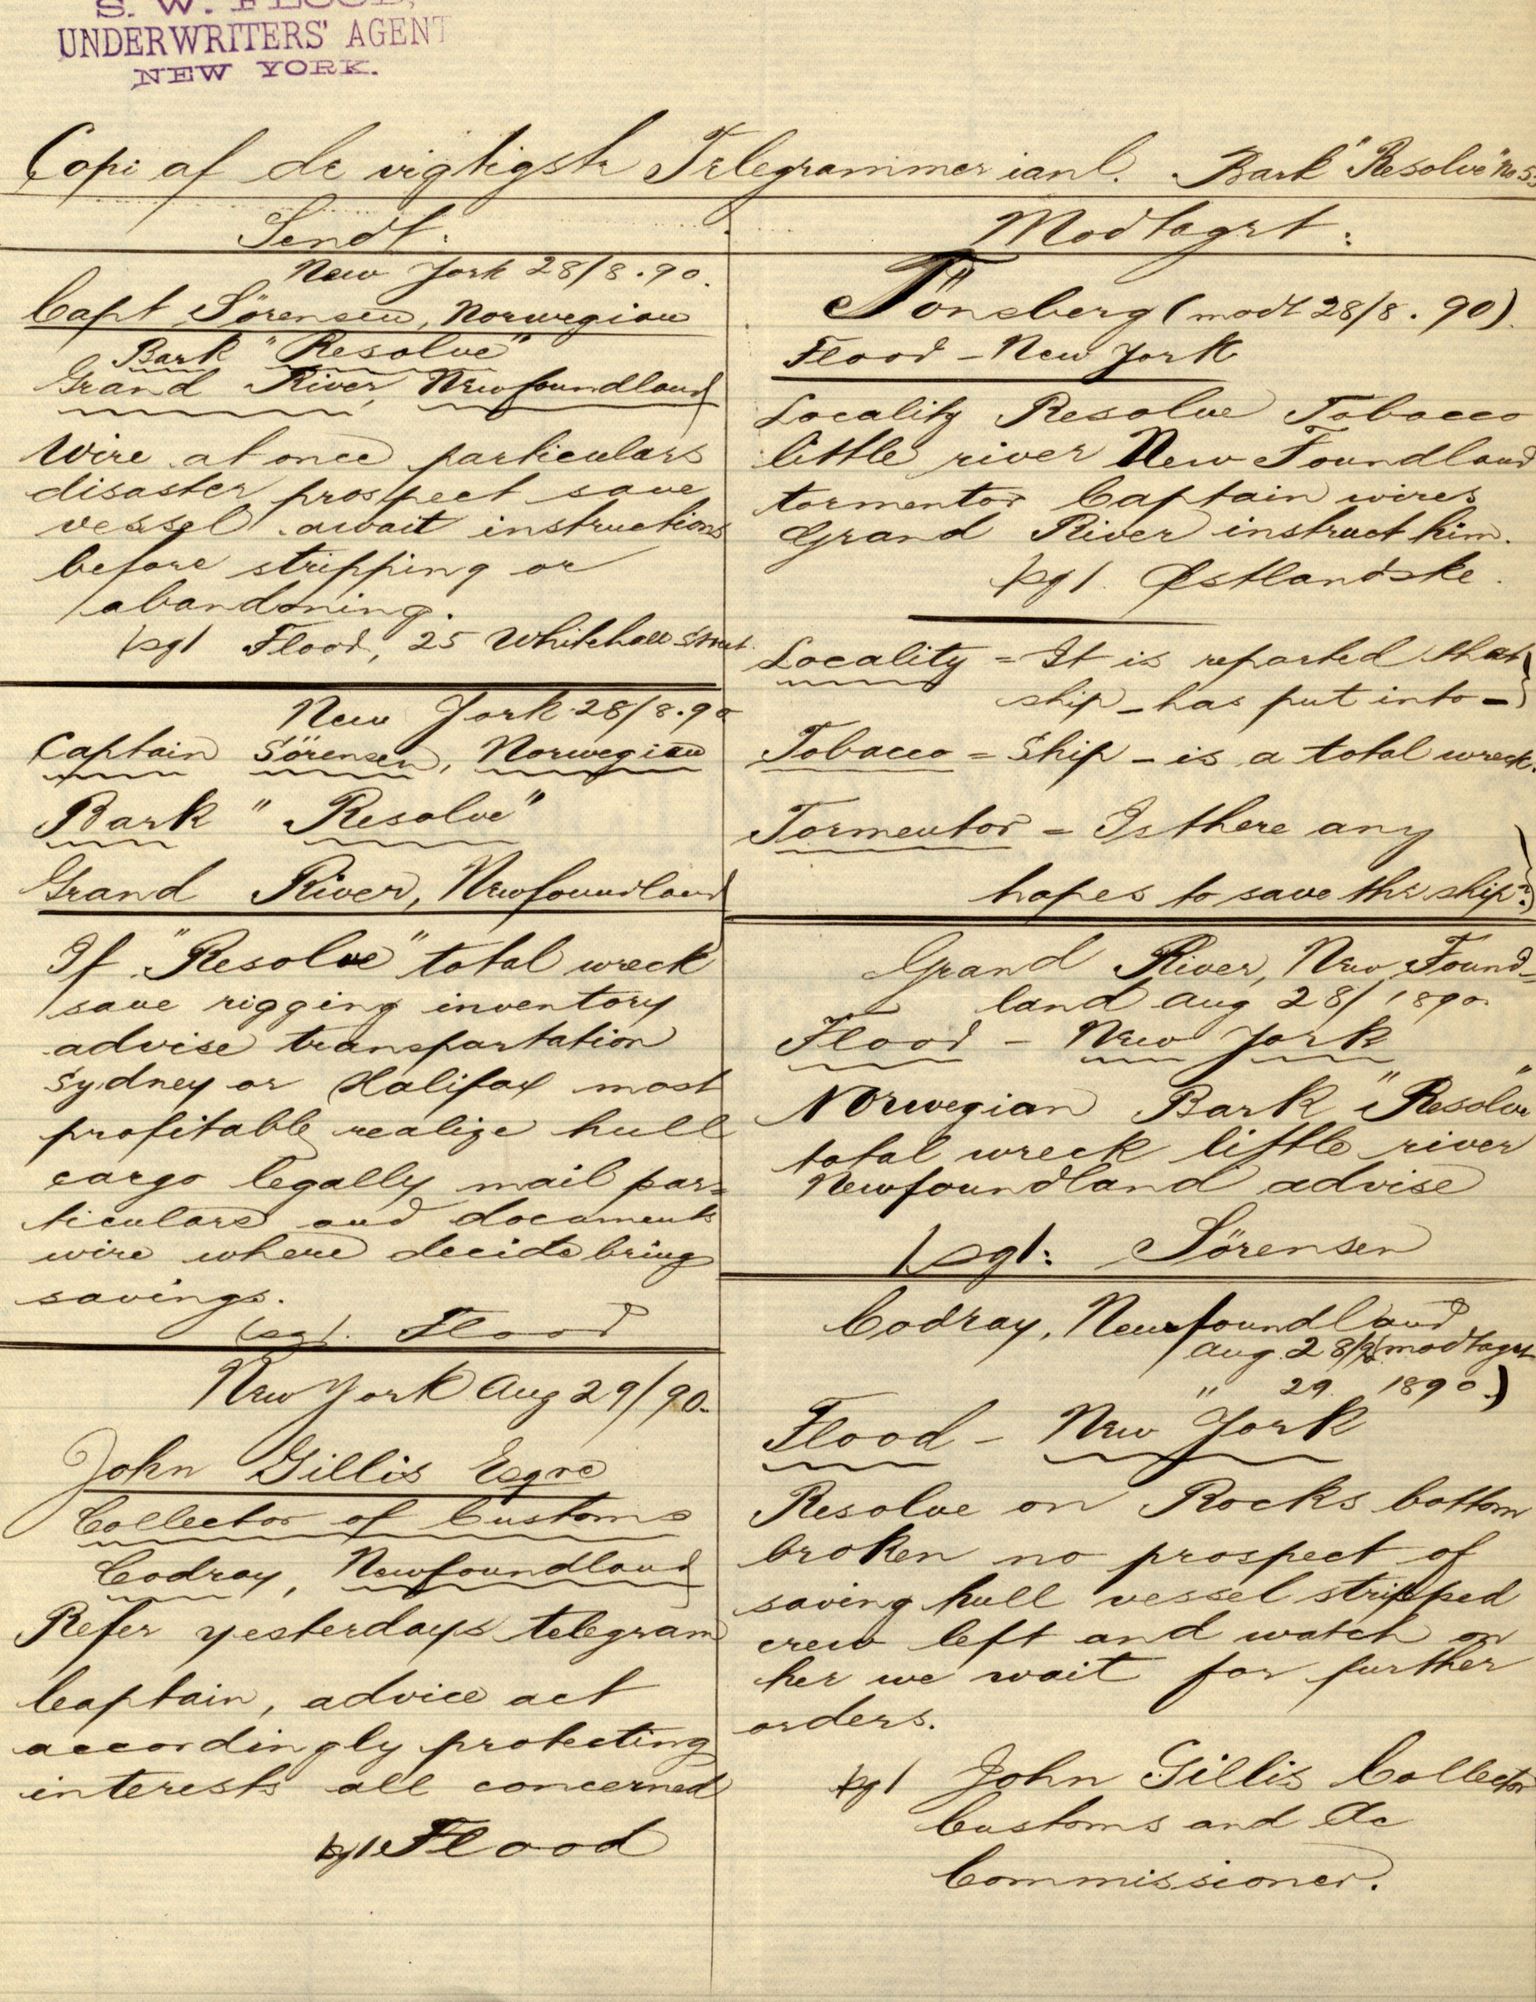 S. W. FLOOD,
UNDERWRITERS' AGENT
NEW YORK.
Copi af de vigtigste Telegrammer ianl. Bark "Resolve" No 5.
Sendt:
New York 28/8.90.
Capt Sörensen, Norwegian
Bark "Resolve"
Grand River, Newfoundland
Wire at once particulars
disaster prospect save
vessel await instructions
before stripping or
abandoning.
sg/ Flood, 25 Whitehall Street.
New York 28/8.90
Captain Sörensen, Norwegian
Bark "Resolve"
Grand River, Newfoundland
If "Resolve" total wreck
save rigging inventory
advise transportation
Sydney or Halifax most
profitable realize hull
cargo legally mail par=
ticulars and documents
wire where decide bring
savings.
sg/. Flood
New York Aug 29/90.
John Gillis Esqre
Collector of Customs
Codray, Newfoundland
Refer yesterdays telegram
Captain, advice act
accordingly protecting
interests all concerned
Flood
Modtaget:
Tönsberg (modt 28/8.90)
Flood – New York
Locality Resolve Tobacco
little river New Foundland
tormentor Captain wires
Grand River instruct him.
sg/. Østlandske.
Locality = It is reported that
ship – has put into –
Tobacco = Ship – is a total wreck.
Tormentor = Is there any
hopes to save the ship?
Grand River, New Found=
land Aug 28/1890.
Flood – New York
Norwegian Bark "Resolve"
total wreck little river
Newfoundland advise
sg/: Sörensen
Codray, Newfoundland
Aug. 28/90 (modtaget
" 29. 1890.)
Flood – New York
Resolve on Rocks bottom
broken no prospect of
saving hull vessel stripped
crew left and watch on
her we wait for further
orders.
sg/ John Gillis Collector
Customs and &c
Commissioner.